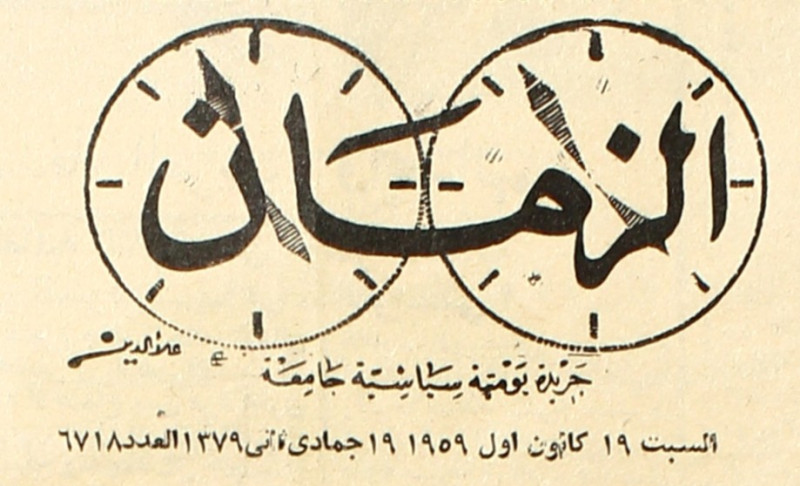 الزمان
علاءالدين
جَرِيدَة يَوْمِيَّة سِيَاسِيَّة جَامِعَة
السبت ١٩ كانون اول ١٩٥٩ ١٩ جمادى ثانى ١٣٧٩ العدد ٦٧١٨